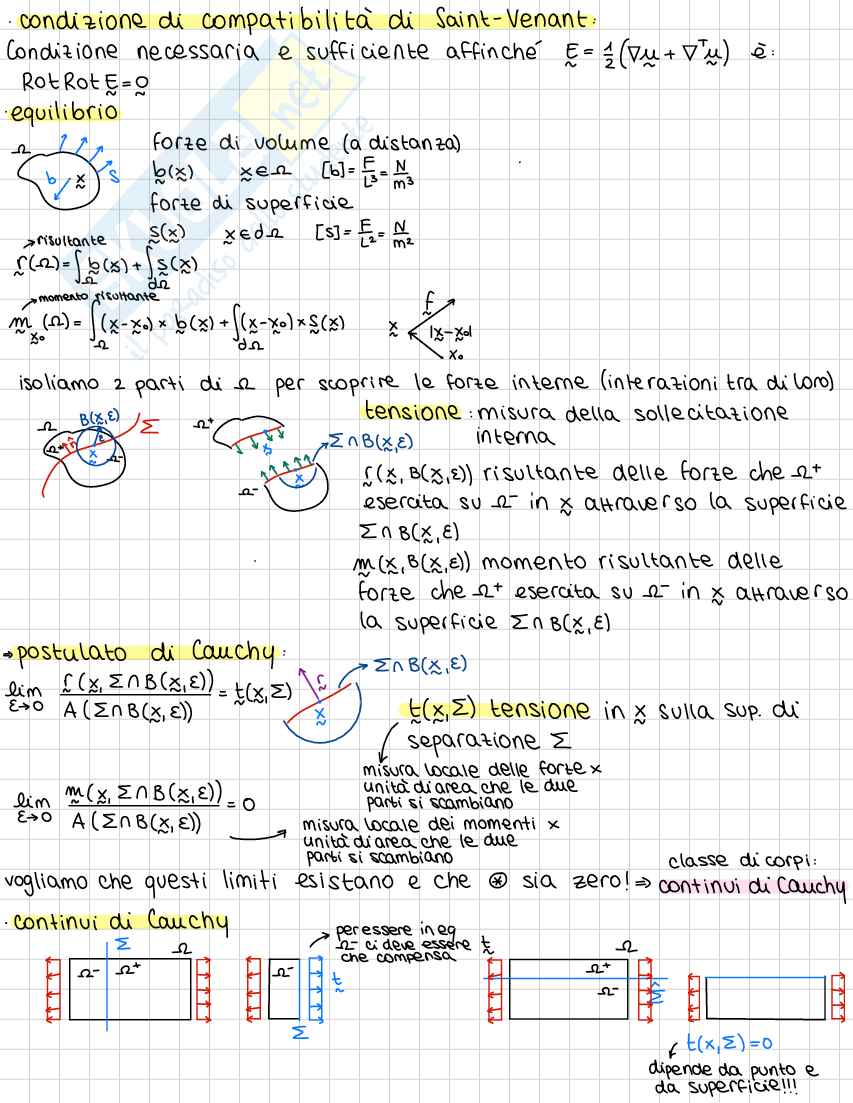 · condizione di compatibilità di Saint-Venant:
Condizione necessaria e sufficiente affinché E = 1/2 (∇u + ∇ᵀu) è:
Rot Rot E = 0
· equilibrio
Ω
b
x
s
forze di volume (a distanza)
b(x) x ∈ Ω [b] = F/L³ = N/m³
forze di superficie
s(x) x ∈ dΩ [s] = F/L² = N/m²
→ risultante
r(Ω) = ∫Ω b(x) + ∫dΩ s(x)
→ momento risultante
m x₀ (Ω) = ∫Ω (x-x₀) × b(x) + ∫dΩ (x-x₀) × s(x)
x
f
|x-x₀|
x₀
isoliamo 2 parti di Ω per scoprire le forze interne (interazioni tra di loro)
Ω
B(x,ε)
Σ
Ω⁺
x
Ω⁻
Ω⁺
s
→ Σ∩B(x,ε)
Ω⁻
x
tensione : misura della sollecitazione
interna
r(x, B(x,ε)) risultante delle forze che Ω⁺
esercita su Ω⁻ in x attraverso la superficie
Σ∩B(x,ε)
m(x, B(x,ε)) momento risultante delle
forze che Ω⁺ esercita su Ω⁻ in x attraverso
la superficie Σ∩B(x,ε)
→ postulato di Cauchy:
lim ε→0 r(x, Σ∩B(x,ε)) / A(Σ∩B(x,ε)) = t(x,Σ)
r
x
→ Σ∩B(x,ε)
t(x,Σ) tensione in x sulla sup. di
separazione Σ
misura locale delle forze x
unità di area che le due
parti si scambiano
lim ε→0 m(x, Σ∩B(x,ε)) / A(Σ∩B(x,ε)) = 0
→ misura locale dei momenti x
unità di area che le due
parti si scambiano
vogliamo che questi limiti esistano e che ⊛ sia zero! ⇒
classe di corpi:
continui di Cauchy
· continui di Cauchy
Σ
Ω
Ω⁻ Ω⁺
Ω⁻
Σ
t
→ per essere in eq
Ω⁻ ci deve essere
t che compensa
Ω
Ω⁺
Ω⁻
Σ
t(x,Σ) = 0
dipende da punto e
da superficie!!!